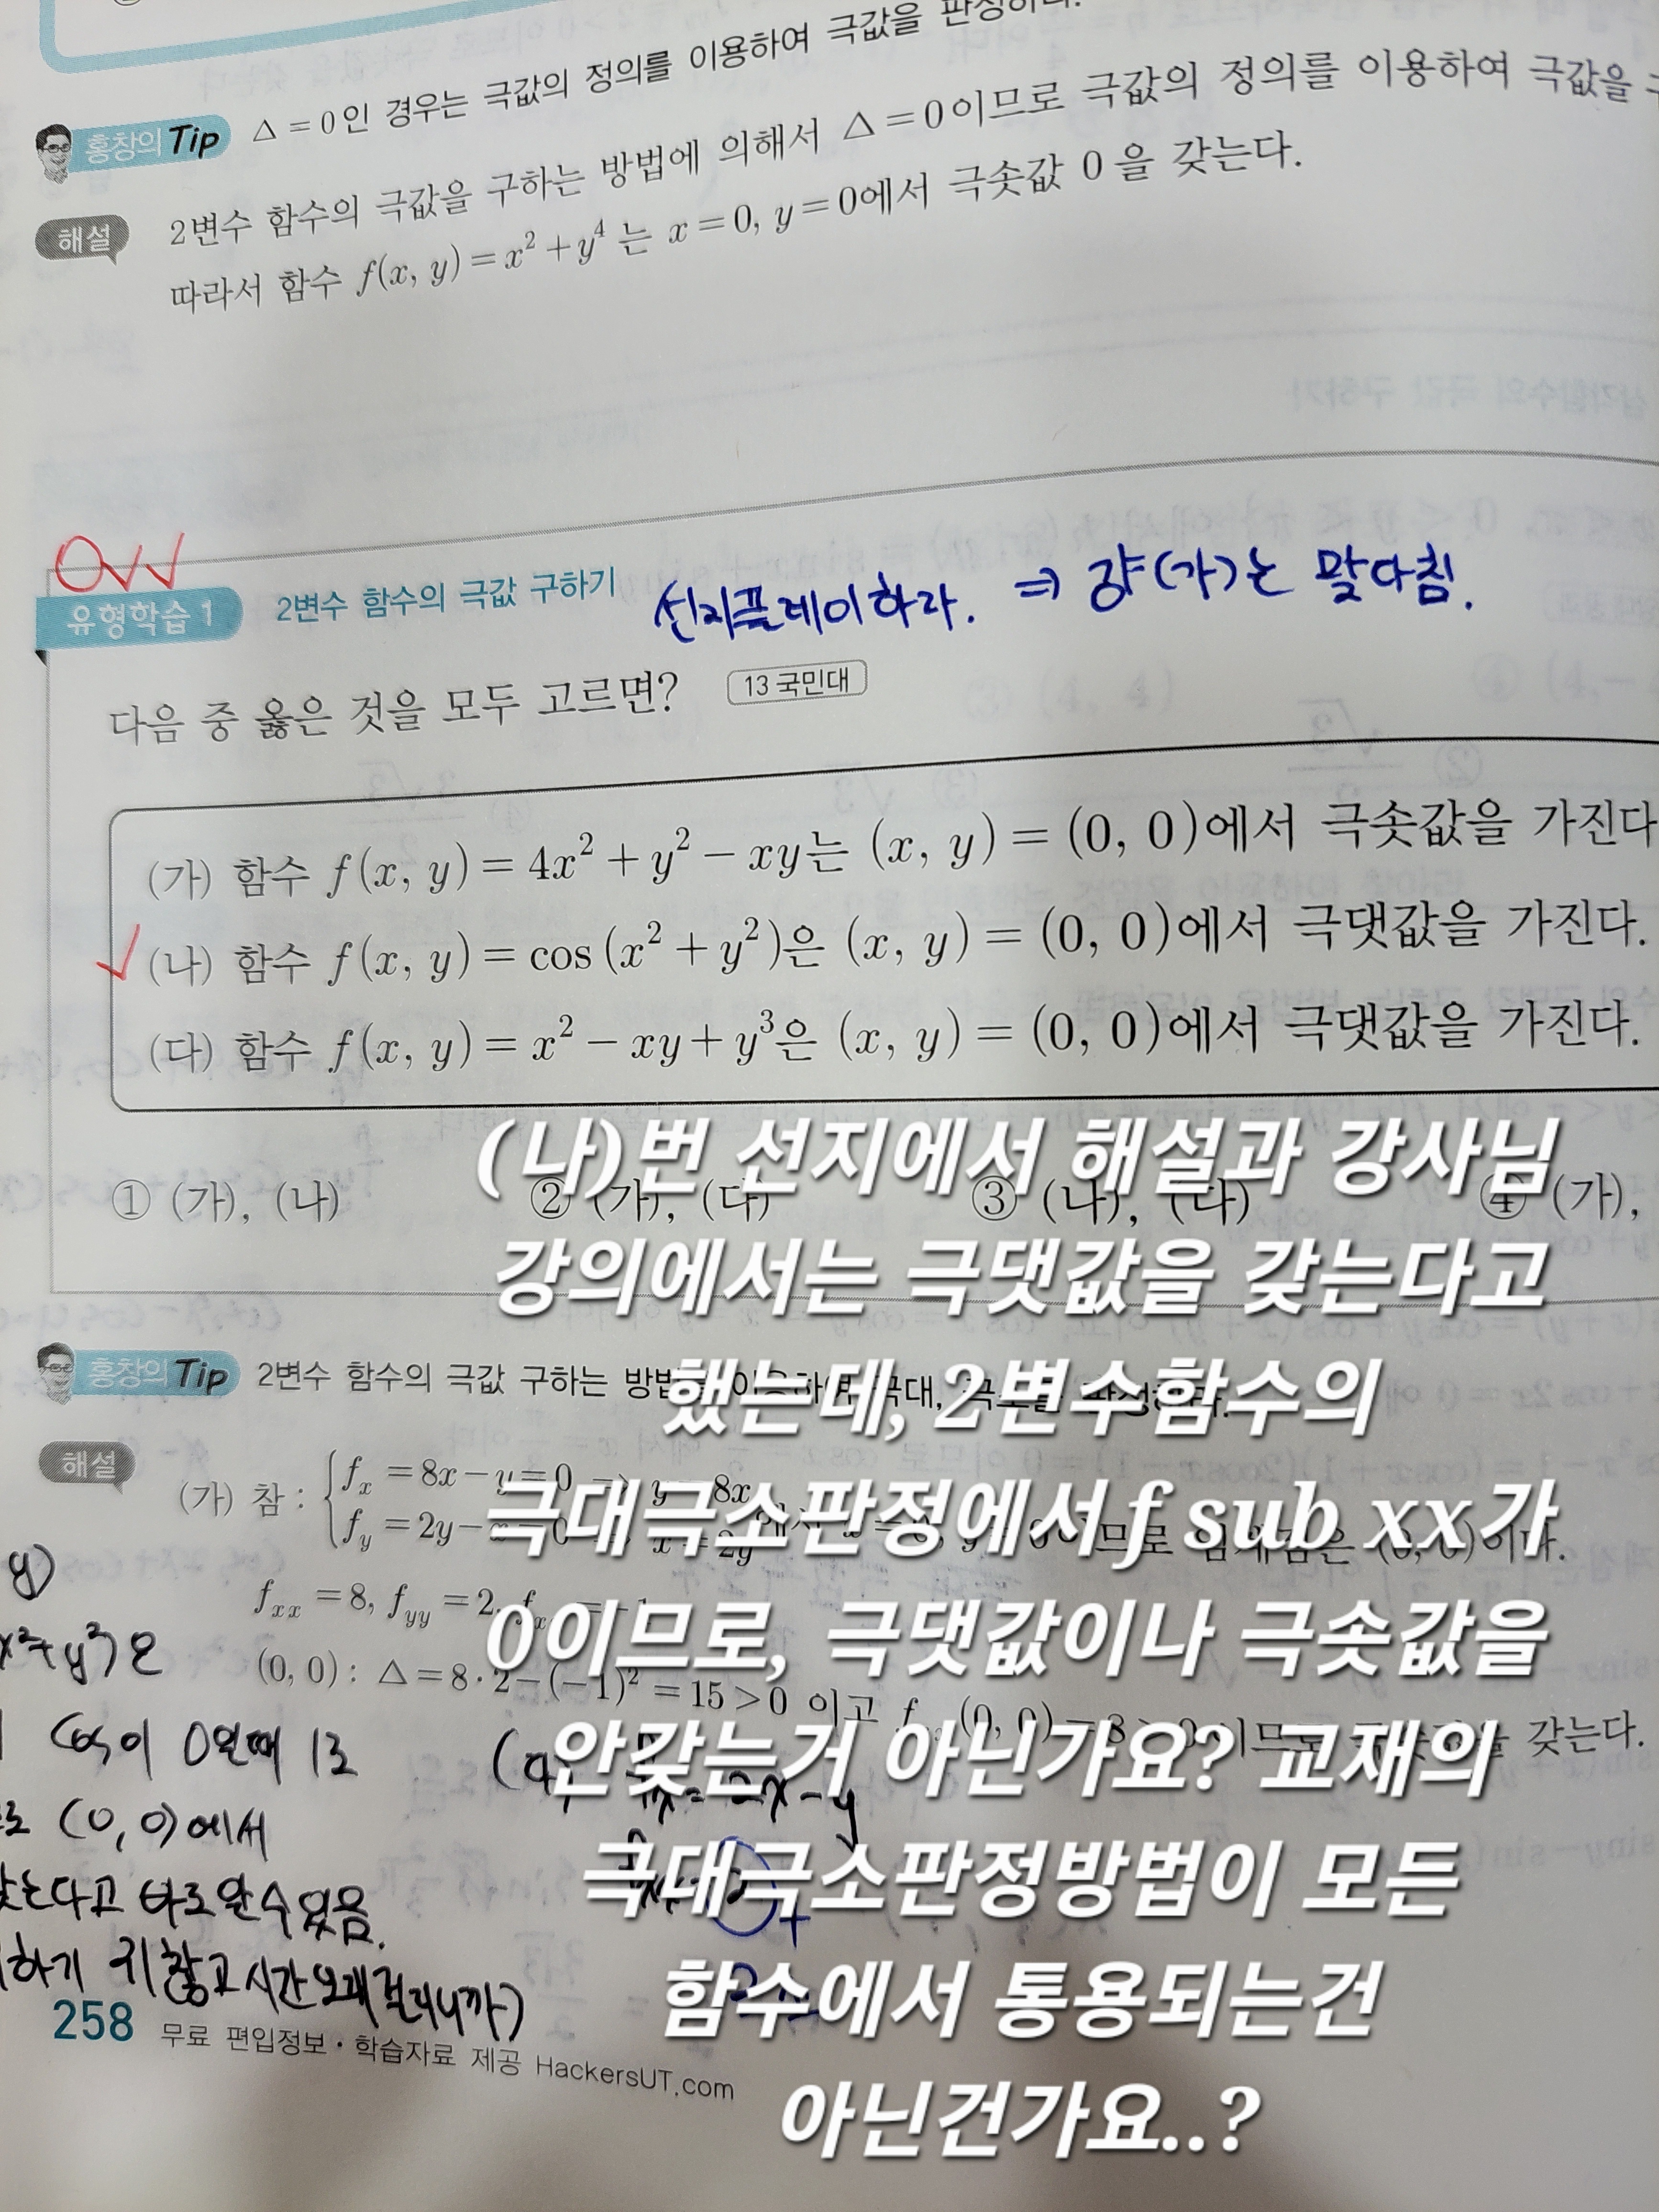 홍창의 Tip △ = 0인 경우는 극값의 정의를 이용하여 극값을 판정하라.
해설 2변수 함수의 극값을 구하는 방법에 의해서 △ = 0이므로 극값의 정의를 이용하여 극값을
따라서 함수 f(x, y) = x² + y⁴ 는 x = 0, y = 0에서 극솟값 0 을 갖는다.
유형학습 1 2변수 함수의 극값 구하기 선지플레이하라. ⇒ 걍 (가)는 맞다침.
다음 중 옳은 것을 모두 고르면? 13 국민대
(가) 함수 f(x, y) = 4x² + y² − xy는 (x, y) = (0, 0)에서 극솟값을 가진다
(나) 함수 f(x, y) = cos (x² + y²)은 (x, y) = (0, 0)에서 극댓값을 가진다.
(다) 함수 f(x, y) = x² − xy + y³은 (x, y) = (0, 0)에서 극댓값을 가진다.
① (가), (나) ② (가), (다) ③ (나), (다) ④ (가),
(나)번 선지에서 해설과 강사님
강의에서는 극댓값을 갖는다고
했는데, 2변수함수의
극대극소판정에서 f sub xx가
0이므로, 극댓값이나 극솟값을
안갖는거 아닌가요? 교재의
극대극소판정방법이 모든
함수에서 통용되는건
아닌건가요..?
홍창의 Tip 2변수 함수의 극값 구하는
해설 (가) 참 : f_x = 8x − y = 0
f_y = 2y −
f_xx = 8, f_yy = 2,
(0, 0) : △ = 8 · 2 − (−1)² = 15 > 0 이고
갖는다.
y)
x²+y²)은
cos이 0일때 1로
(0, 0)에서
갖는다고 바로 알 수 있음.
하기 귀찮고 시간 오래 걸리니까)
258 무료 편입정보 · 학습자료 제공 HackersUT.com